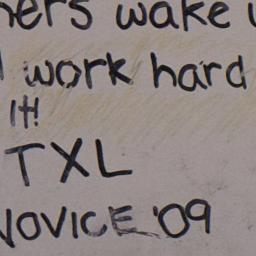 hers wake u
work hard
It!
TXL
NOVICE '09